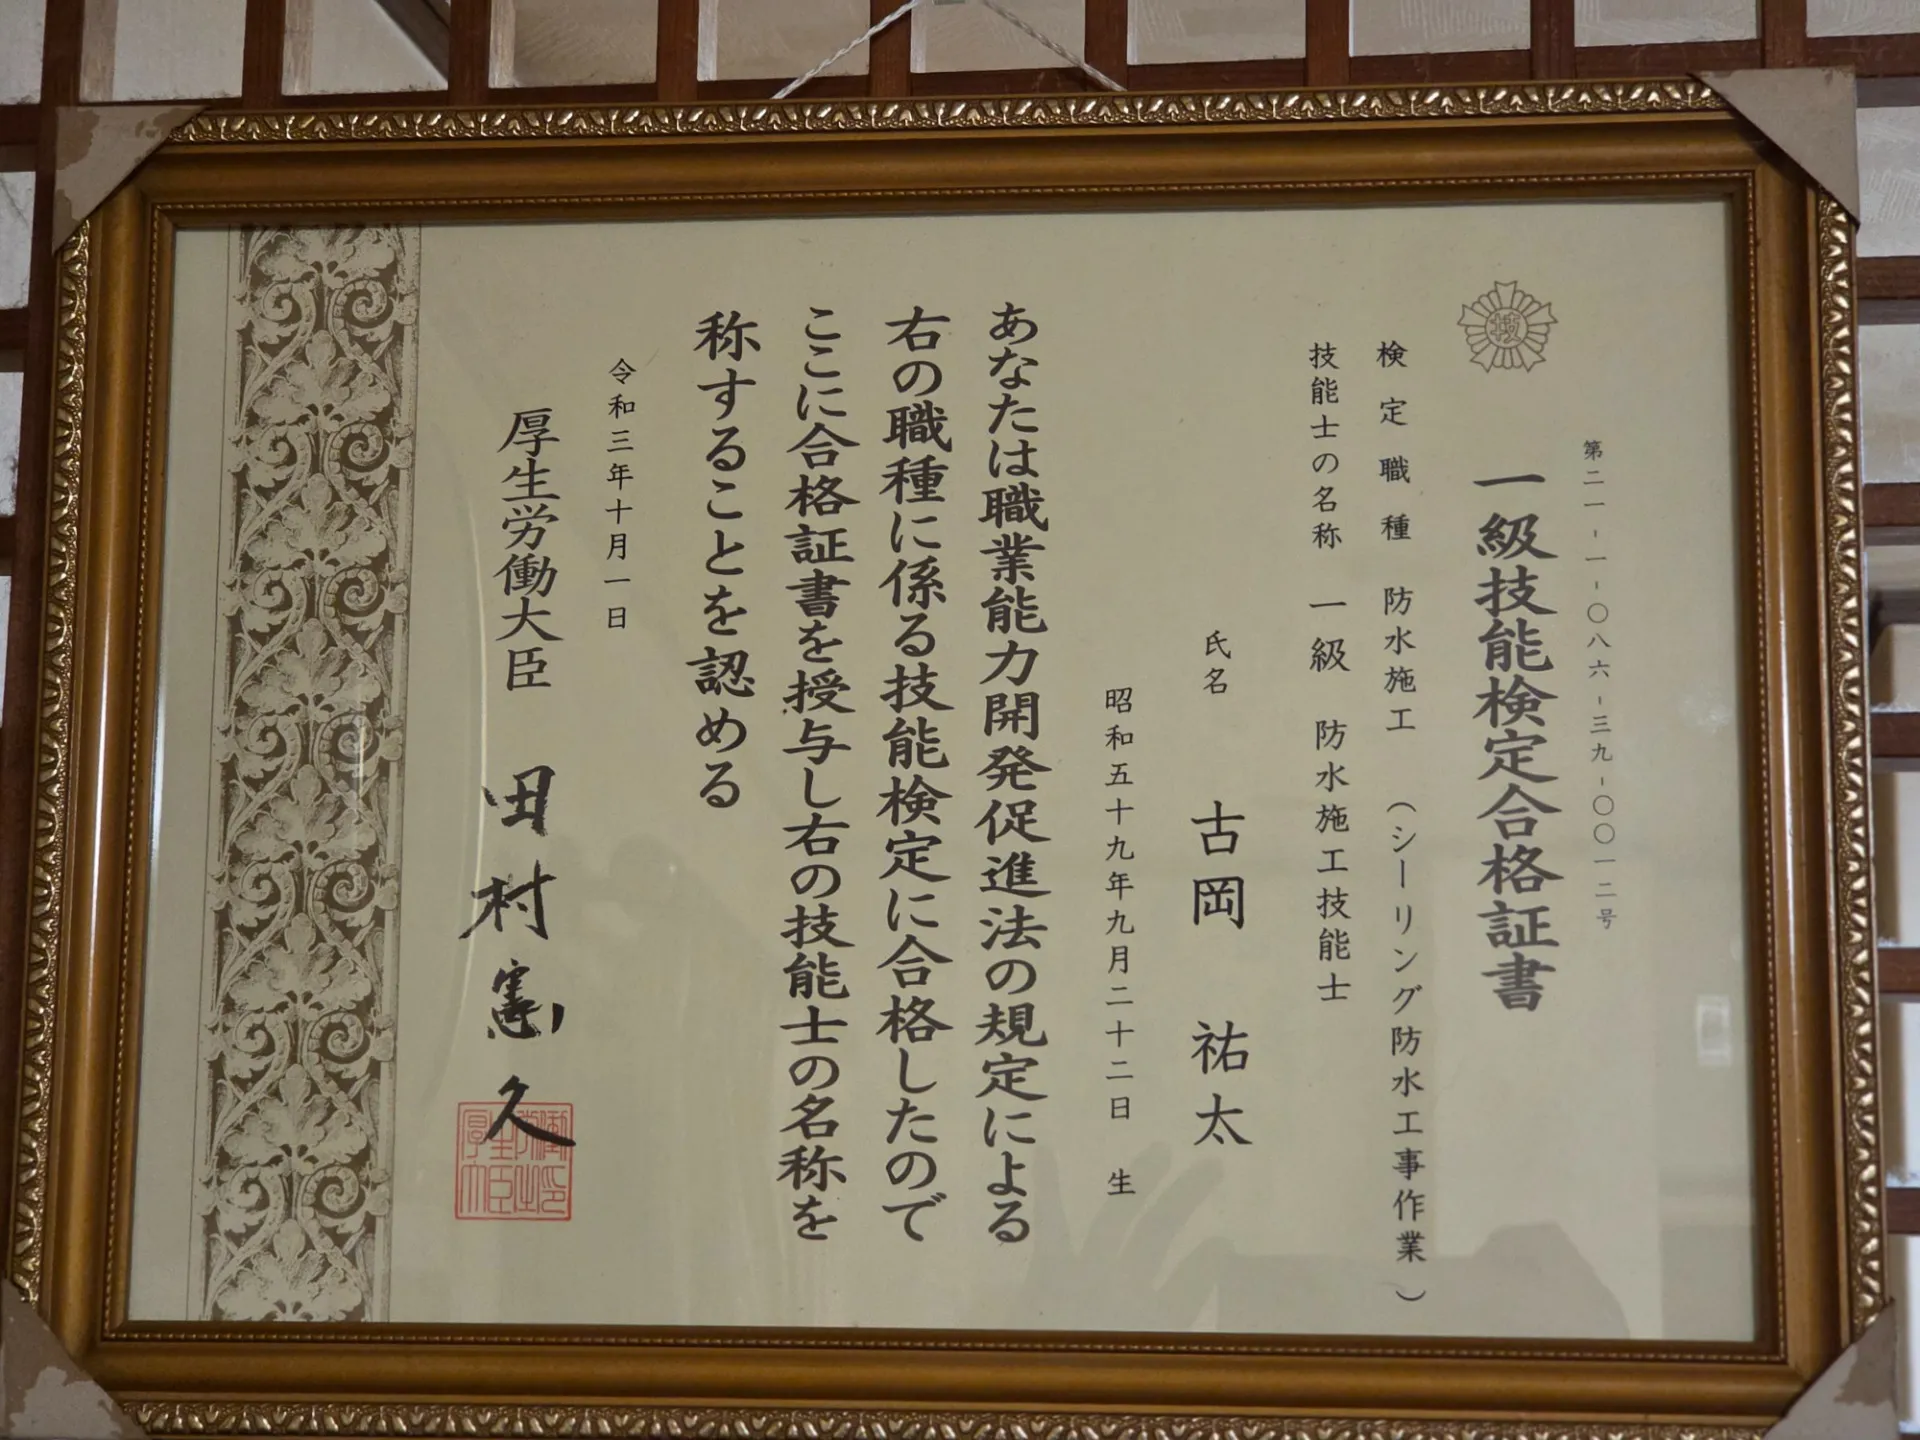 第二一-一-〇八六-三九-〇〇一二号
一級技能検定合格証書
技
検定職種 防水施工 (シーリング防水工事作業)
技能士の名称 一級 防水施工技能士
氏名 古岡 祐太
昭和五十九年九月二十二日 生
あなたは職業能力開発促進法の規定による
右の職種に係る技能検定に合格したので
ここに合格証書を授与し右の技能士の名称を
称することを認める
令和三年十月一日
厚生労働大臣 田村憲久